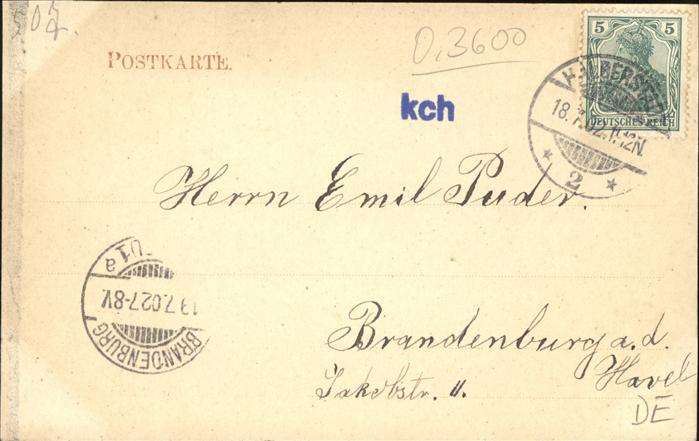 0,3600
POSTKARTE.
kch
5 5
DEUTSCHES REICH
HALBERSTADT
18.7.02.11.12N.
2
Herrn Emil Puder.
BRANDENBURG
19.7.02.7-8V.
Brandenburg a. d.
Havel
Jakobstr. 11.
DE